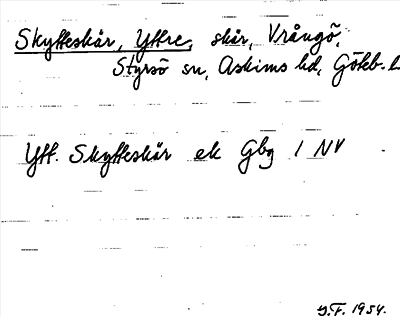 Skytteskär, Yttre, skär, Vrångö,
Styrsö sn, Askims hd, Göteb. l
Ytt. Skytteskär ek Gbg 1 NV
G.F. 1934.